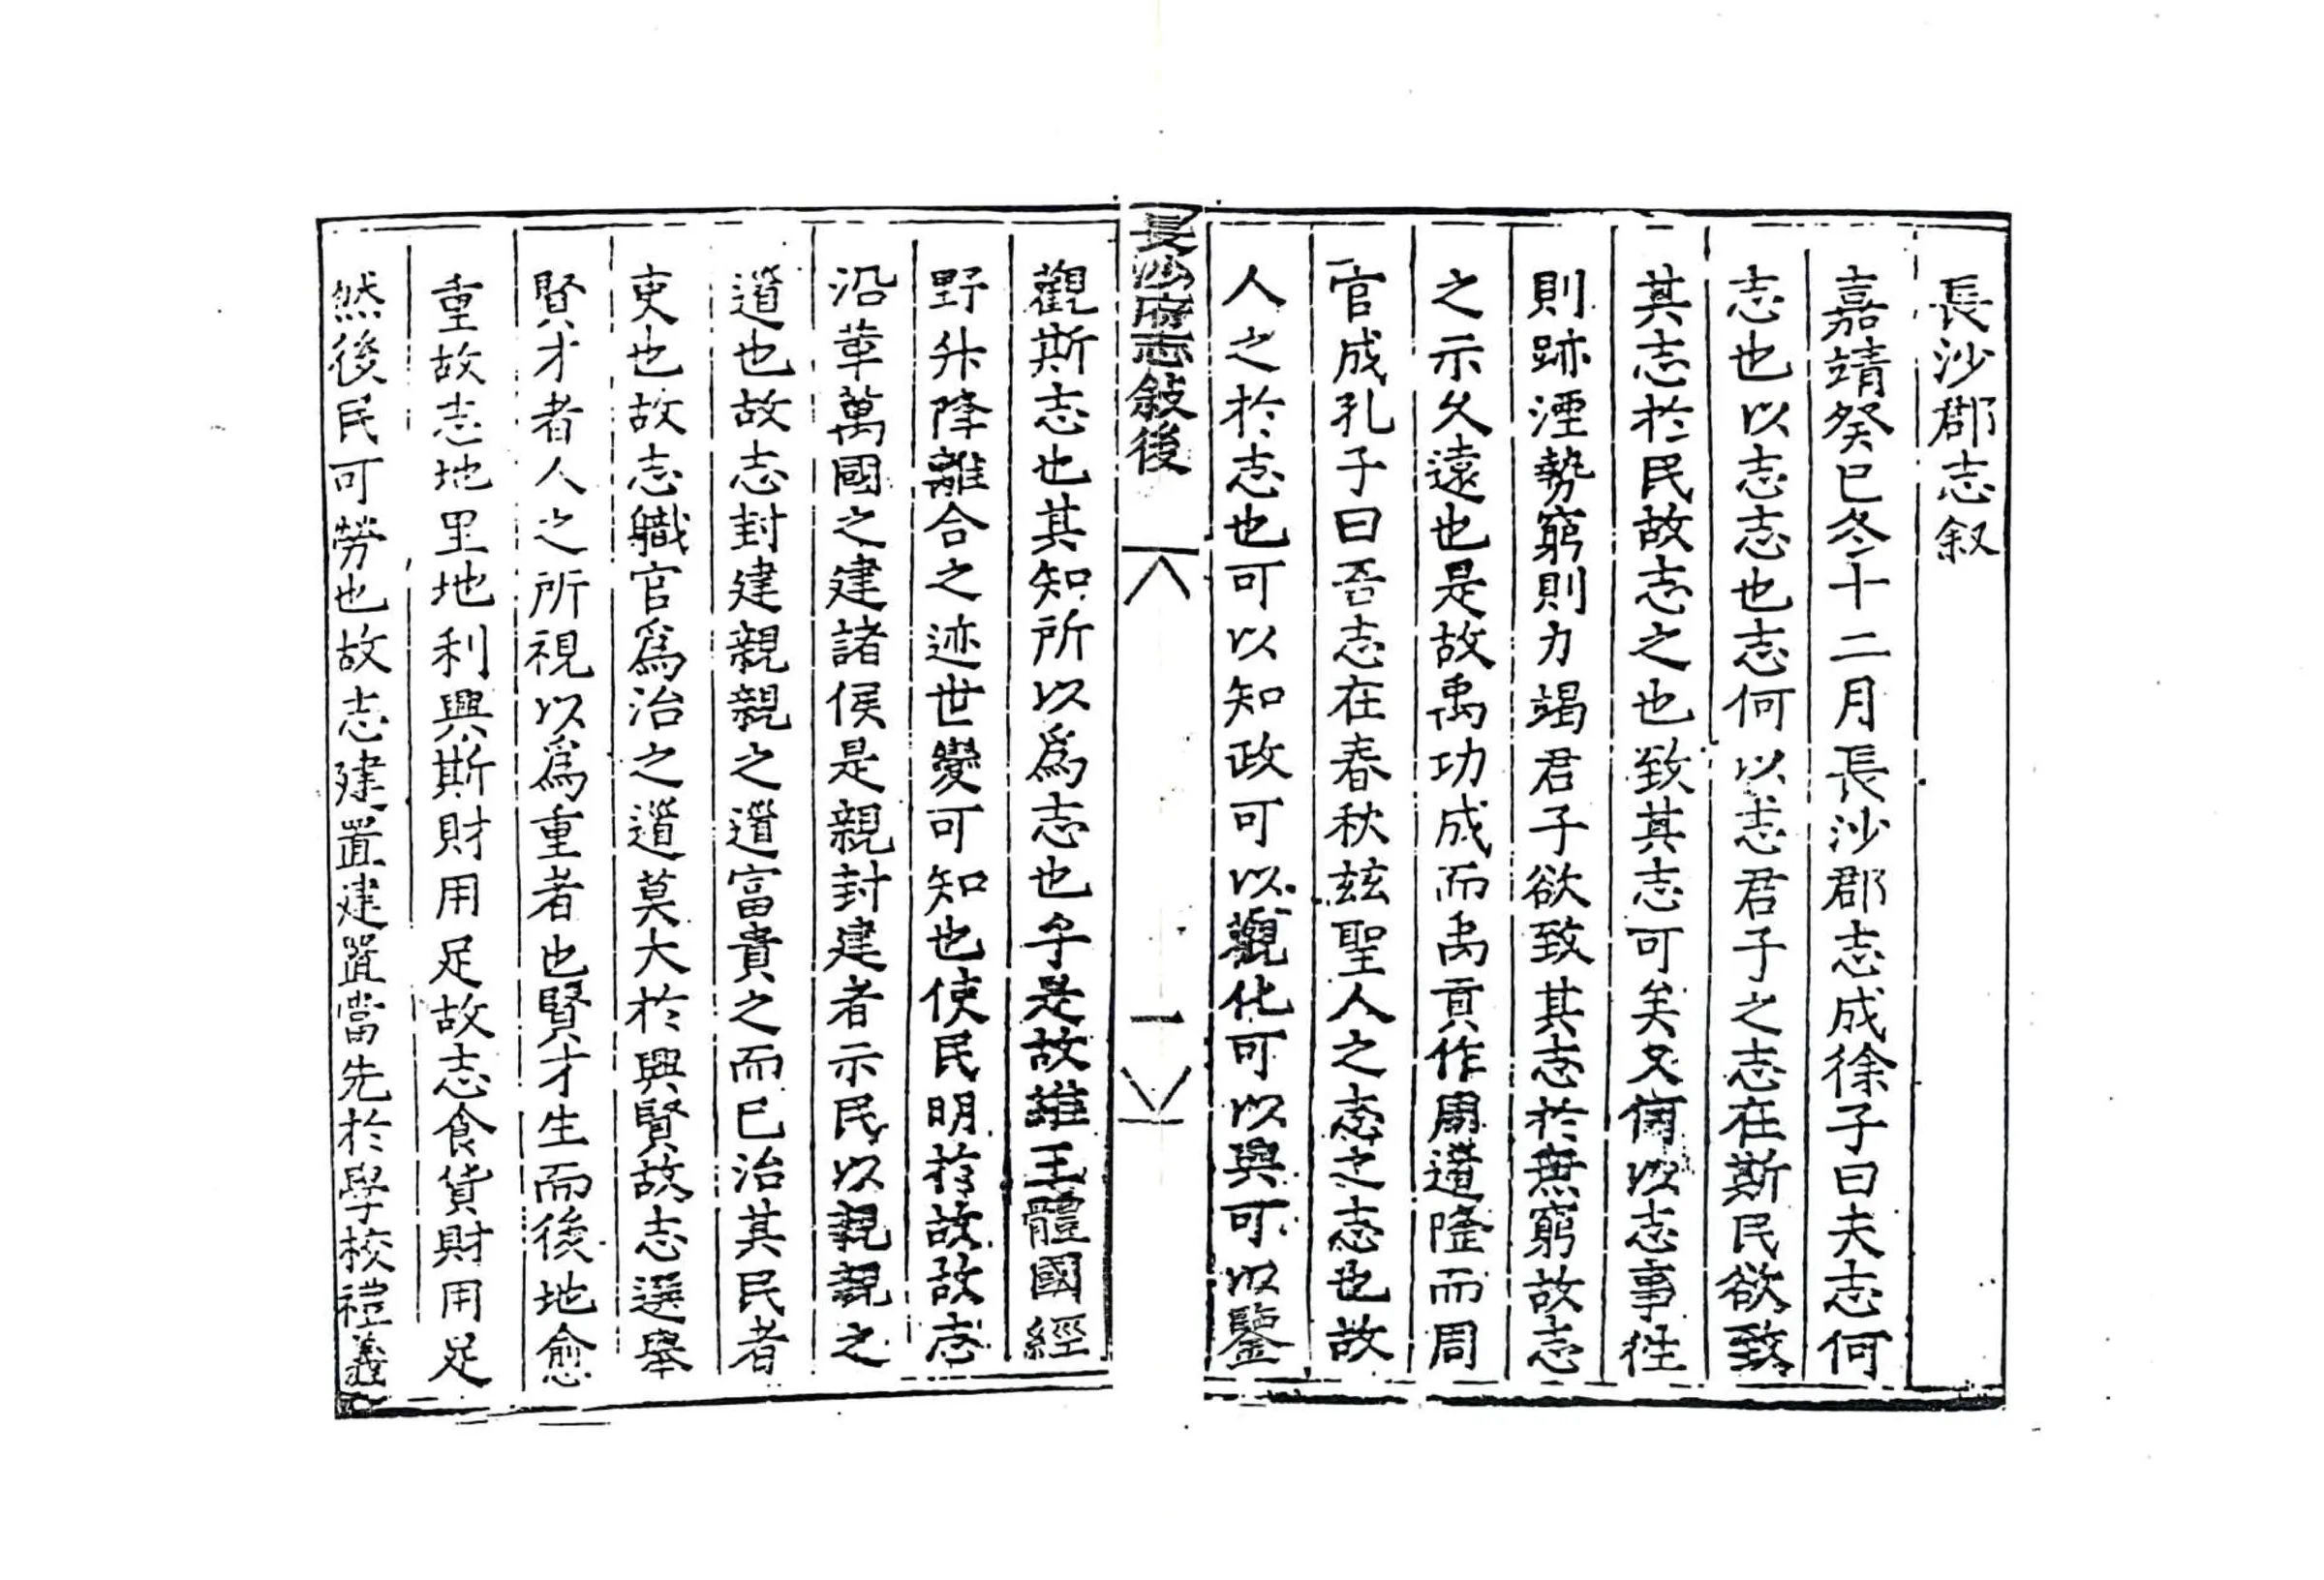 長沙郡志叙
嘉靖癸巳冬十二月長沙郡志成徐子曰夫志何
志也以志志也志何以志君子之志在斯民欲致
其志於民故志之也致其志可矣又何以志事徃
則跡湮勢窮則力竭君子欲致其志於無窮故志
之示久遠也是故禹功成而禹貢作周道隆而周
官成孔子曰吾志在春秋玆聖人之志之志也故
人之於志也可以知政可以觀化可以興可以鑒
長沙府志敍後
一
觀斯志也其知所以爲志也乎是故維王體國經
野升降離合之迹世變可知也使民明於故故志
沿革萬國之建諸侯是親封建者示民以親親之
道也故志封建親親之道富貴之而已治其民者
吏也故志職官爲治之道莫大於興賢故志選舉
賢才者人之所視以爲重者也賢才生而後地愈
重故志地里地利興斯財用足故志食貨財用足
然後民可勞也故志建置建置當先於學校禮義